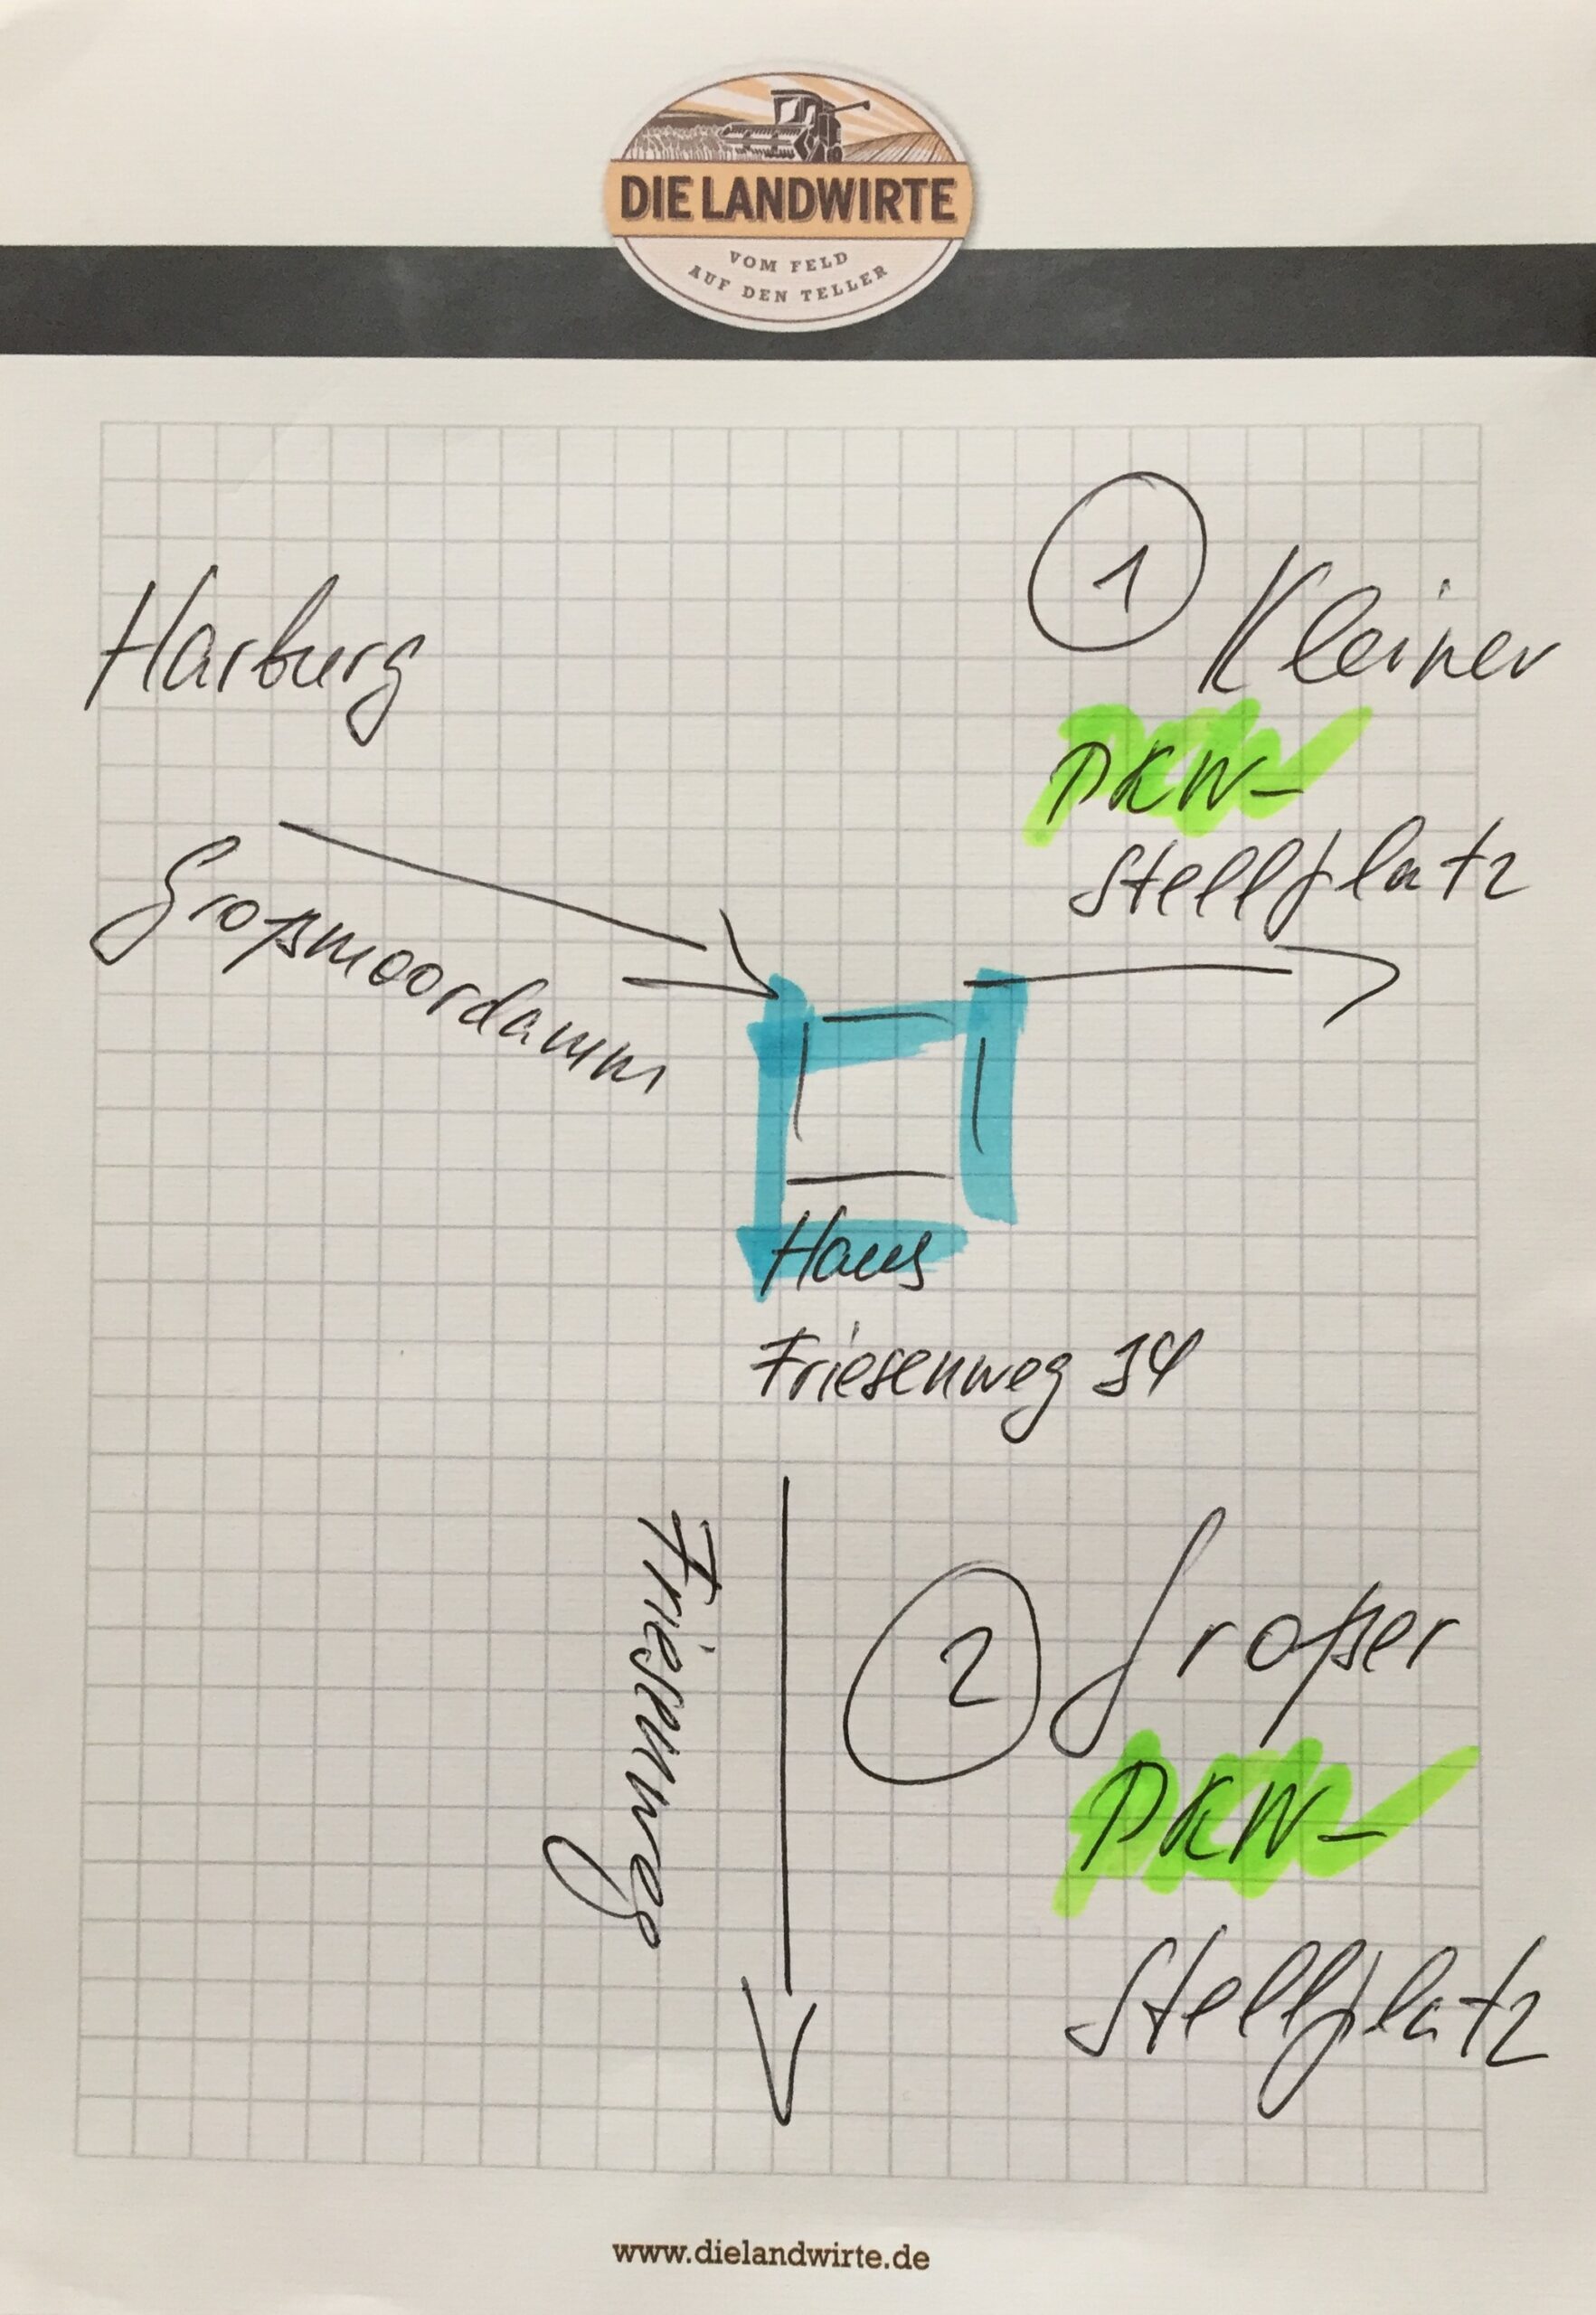 DIE LANDWIRTE
VOM FELD
AUF DEN TELLER
1
Kleiner
PKW-
Stellplatz
Harburg
Großmoordamm
Haus
Friesenweg 14
Friesenweg
2
Großer
PKW-
Stellplatz
www.dielandwirte.de